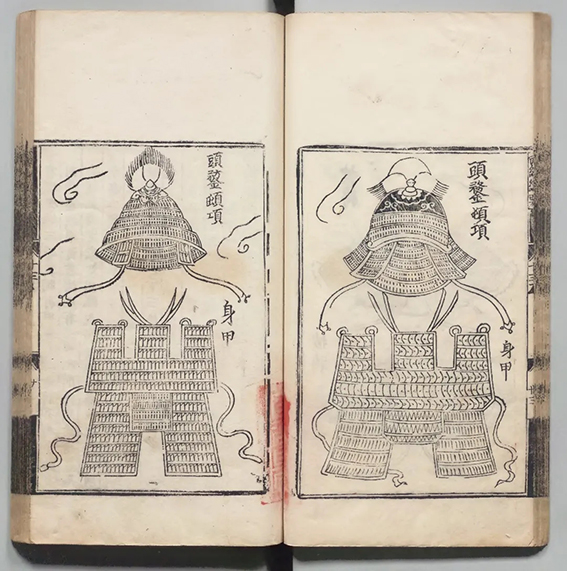 頭鍪頓項
身甲
頭鍪頓項
身甲